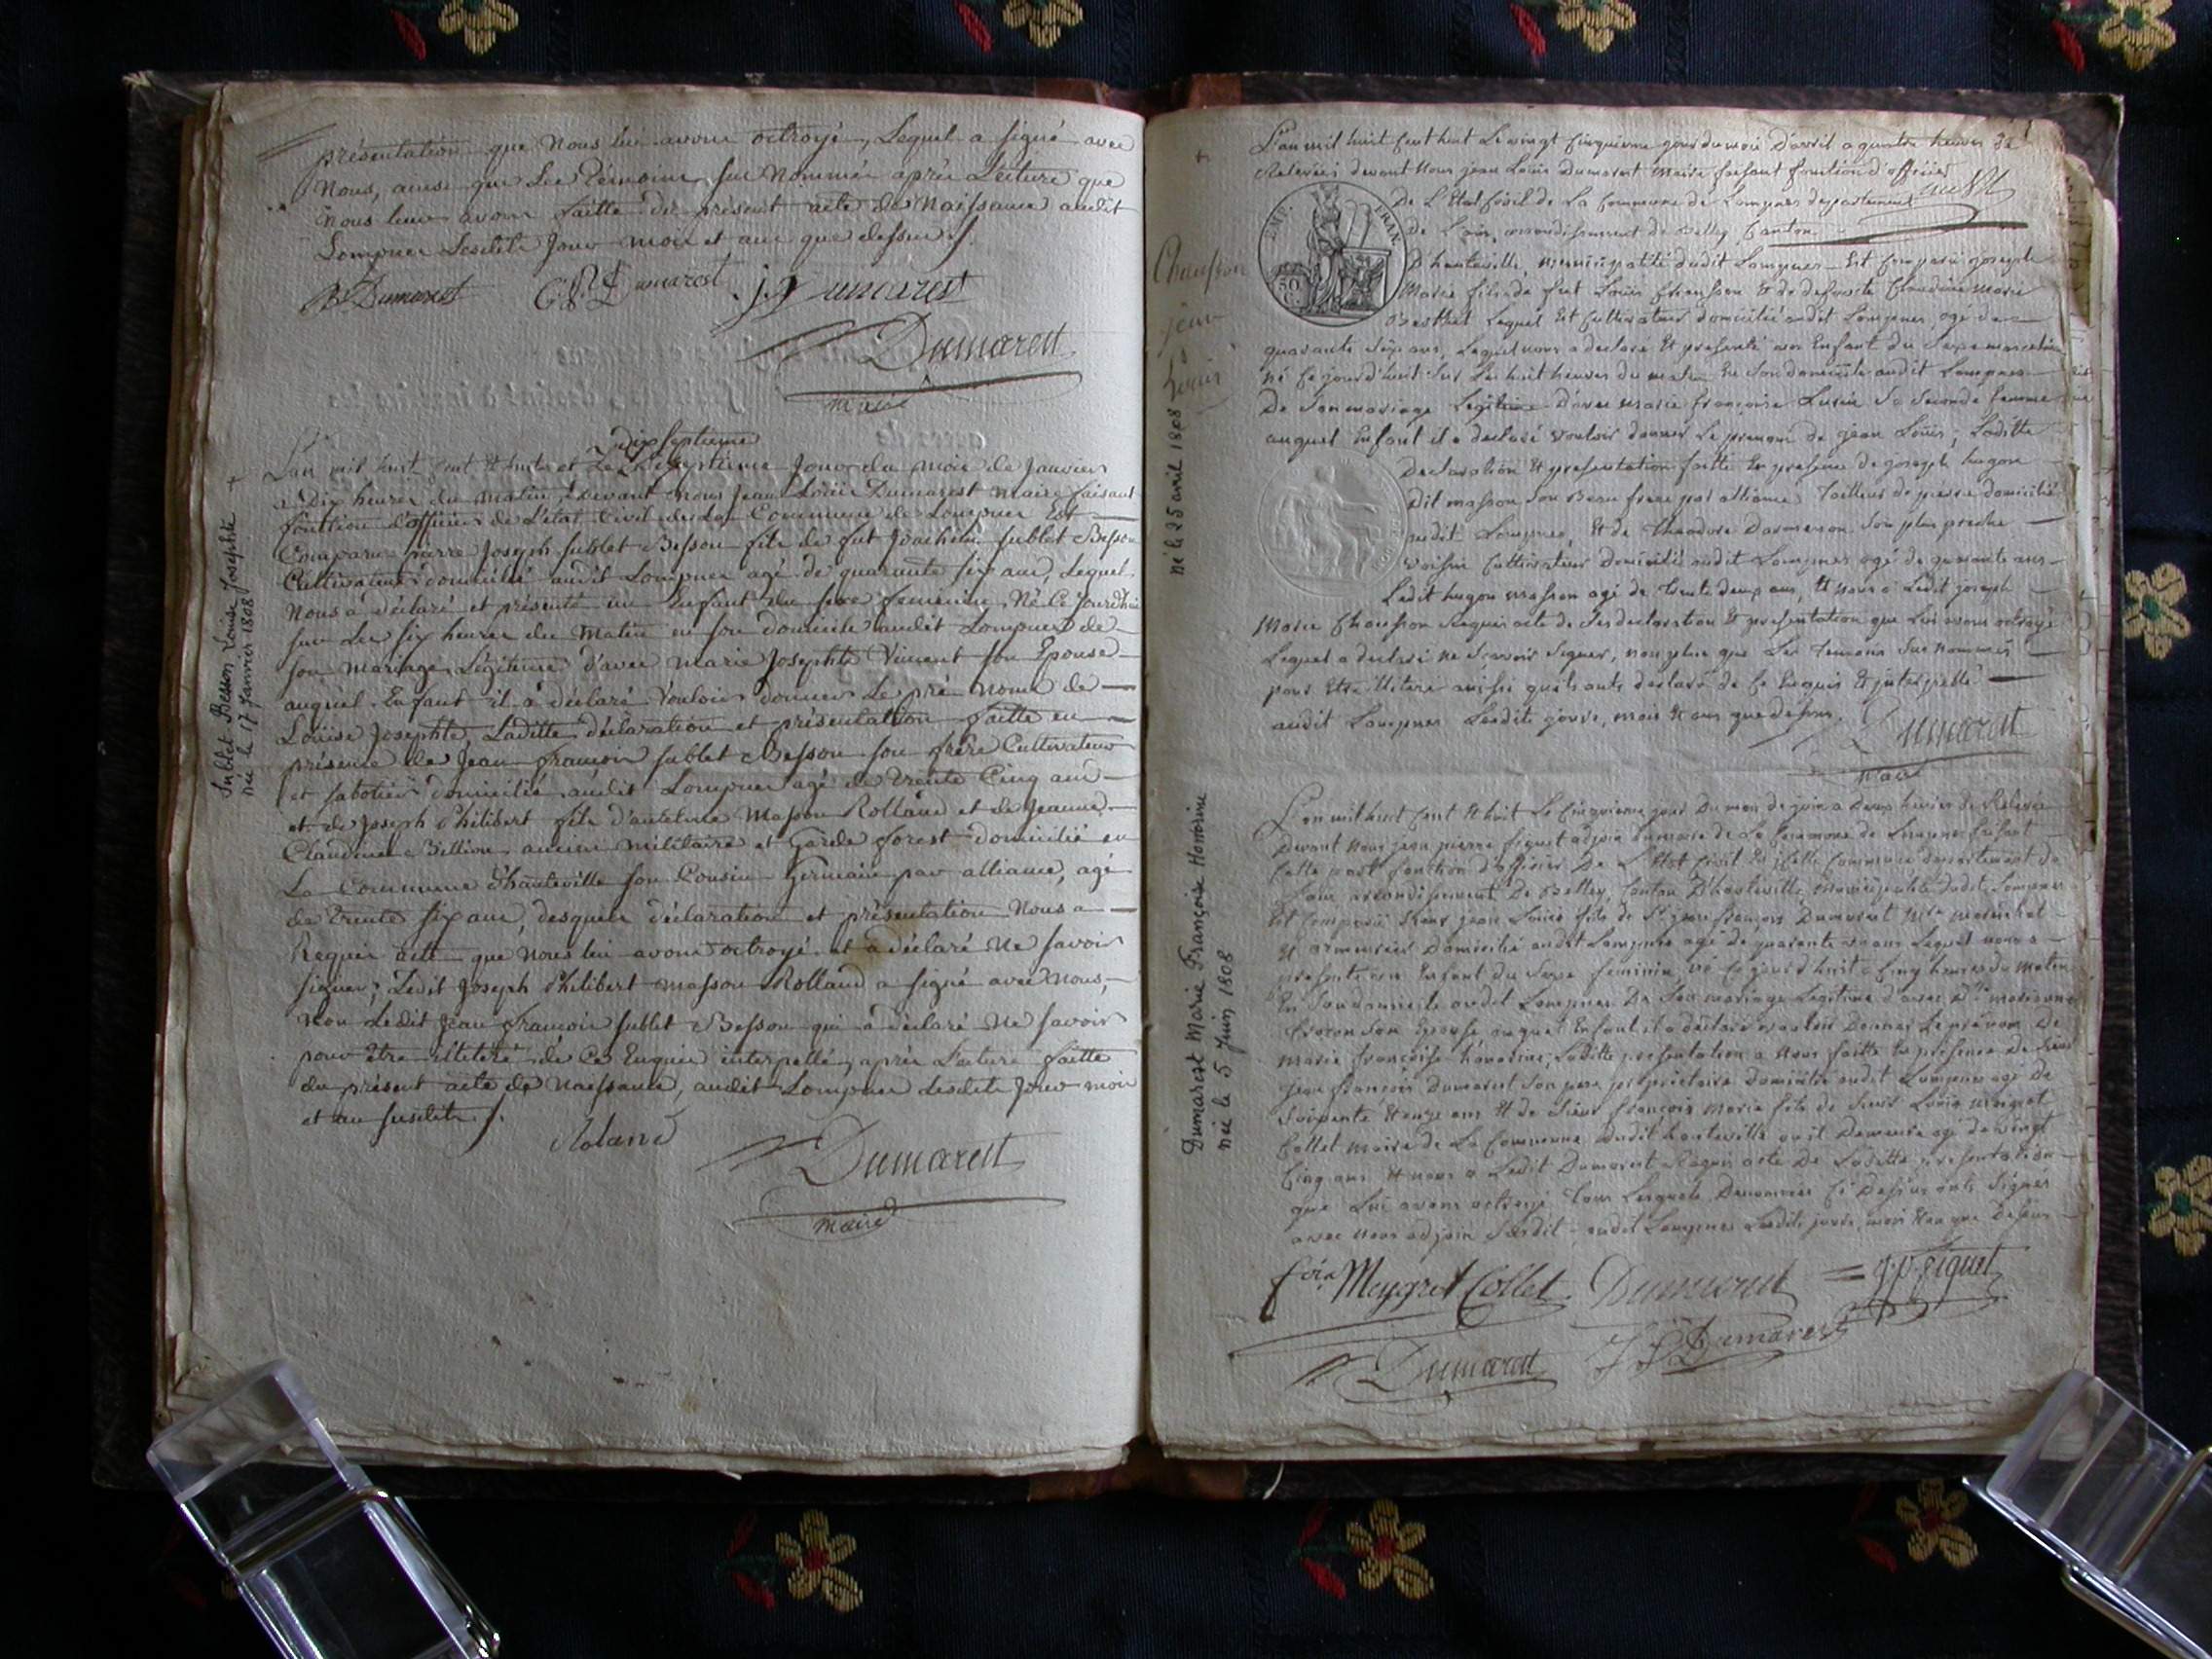 présentation que Nous lui avons octroyé, Lequel a signé avec
Nous, ainsi que Les Témoins sus Nommés après Lecture que
Nous leur avons faitte du présent acte de Naissance audit
Lompnes Lesdits Jour mois et an que dessus
Dumarest Dumarest Dumarest
Dumarest
maire
Sublet Besson Louise Josephte
née le 17 Janvier 1808
dixseptieme
L'an mil huit cent et huit et Le Jour du mois de Janvier
à Dix heures du matin, Devant Nous Jean Loüis Dumarest maire faisant
fonction d'officier de L'état Civil de La Commune de Lompnes Est
Comparu pierre Joseph Sublet Besson fils de fut Joachim Sublet Besson
Cultivateur domicilié audit Lompnes agé de quarante six ans, Lequel
Nous a déclaré et présenté un Enfant du sexe feminin, Né Ce Jourdhui
sur Les six heures du Matin en son domicile audit Lompnes de
son mariage Légitime d'avec Marie Josephte Vincent son Epouse
auquel Enfant il a déclaré Vouloir donner Le pré Nom de
Loüise Josephte, Laditte déclaration et présentation faitte en
présence de Jean francois Sublet Besson son frère Cultivateur
et sabotier domicilié audit Lompnes agé de trente Cinq ans
et de Joseph Philibert fils d'antelme Masson Rolland et de Jeanne
Claudine Billion ancien Militaire et Garde forest domicilié en
La Commune d'hauteville son Cousin Germain par alliance, agé
de trente six ans, desquels déclaration et présentation Nous a
Requis acte que Nous lui avons octroyé et a déclaré Ne savoir
signer; Ledit Joseph Philibert Masson Rolland a signé avec Nous,
Non Ledit Jean francois Sublet Besson qui a déclaré Ne savoir
pour être illitéré de Ce Enquis interpellé, après Lecture faitte
du présent acte de Naissance, audit Lompnes Lesdits Jour mois
et an susdits
Roland
Dumarest
maire
L'an mil huit Cent huit Le vingt Cinquieme jour du moi D'avril a quatre heures de
Relevée; devant Nous jean Loüis Dumarest Maire faisant fonction d'officier
De L'Etat Civil de La Commune de Lompnes departement
De L'ain, arrondissement de Belley, Canton
D'hauteville, municipalité dudit Lompnes Est Comparu joseph
Marie fils de fut Loüis Chausson et de defuncte Claudine Marie
Berthet Lequel Est Cultivateur domicilié audit Lompnes, agé de
quarante ans, Lequel nous a declaré Et presenté un Enfant du Sexe masculin
Né Ce jourd'huit Sur Les huit heures du matin En Son domicile audit Lompnes
De Son mariage Legitime D'avec Marie françoise Sa Seconde femme
auquel Enfant il a declaré vouloir donner Le prenom de jean Loüis; Laditte
Declaration Et presentation faitte En presence de joseph hugon
dit masson Son Beau frere par alliance Tailleur de pierre domicilié
audit Lompnes, Et de Theodore Son plus proche
voisin Cultivateur Domicilié audit Lompnes agé de quarante ans
Ledit hugon masson agé de trente deux ans, Et Nous a Ledit joseph
Marie Chausson Requis acte de Ses declaration Et presentation que Lui avons octroyé
Lequel a declaré ne Sçavoir Signer, non plus que Les Temoins Sus nommés
pour Etre illitere ainssi quils onts declaré de Ce Enquis Et interpellé
audit Lompnes Lesdits jours, mois Et an que dessus
Dumarest
maire
EMP. FRAN.
50
C.
Chausson
jean
loüis
né le 25 avril 1808
Dumarest Marie Françoise Honorine
née le 5 Juin 1808
L'an mil huit Cent Et huit Le Cinquieme jour Du mois de juin a Deux heures de Relevée
Devant Nous jean pierre figuet adjoin du maire de La Commune de Lompnes faisant
Cette part fonction d'officier De L'Etat Civil En jcelle Commune departement de
L'ain arrondissement De Belley, Canton D'hauteville, Municipalité dudit Lompnes
Est Comparu Sieur jean Loüis fils de Sr jean françois Dumarest Mtre Marechal
Et armeurier Domicilié audit Lompnes agé de quarante ans Lequel nous a
presenté un Enfant du Sexe feminin né Ce jourd'huit a Cinq heures du Matin
En Son domicile audit Lompnes De Son mariage Legitime d'avec Dlle marianne
Son Epouse auquel Enfant il a declaré vouloir Donner Le prénom De
marie françoise honorine; Laditte presentation a Nous faitte En presence De Sieur
jean françois Dumarest Son pere proprietaire Domicilié audit Lompnes agé De
Soixante Et onze ans Et de Sieur françois Marie fils de Sieur Loüis Meigret
Collet Maire de La Commune Dudit hauteville ou il Demeure agé de vingt
Cinq ans Et nous a Ledit Dumarest Requis acte De Laditte presentation
que Lui avons octroyé Tous Lesquels Denommés Ci Dessus onts Signes
avec Nous adjoin Susdit, audit Lompnes Lesdits jours, mois Et an que Dessus
Meygret Collet Dumarest j.p. figuet
Dumarest Dumarest